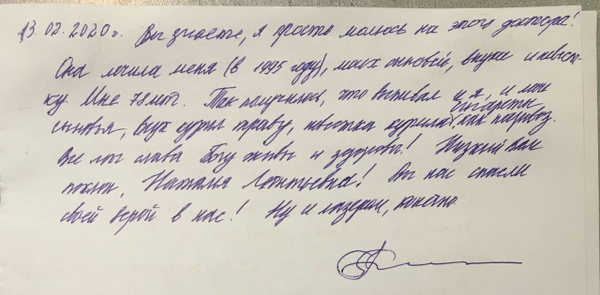 13.02.2020г. Вы знаете, я просто молюсь на этого доктора!
Она лечила меня (в 1995 году), моих сыновей, внука и невест-
ку. Мне 78 лет. Так получилось, что выпивал и я, и мои
сыновья, внук курил траву, невестка курила сигареты, как паровоз.
Все мы слава Богу живы и здоровы! Низкий Вам
поклон, Наталия Леонтьевна! Вы нас спасли
своей верой в нас! Ну и лазером, конечно.